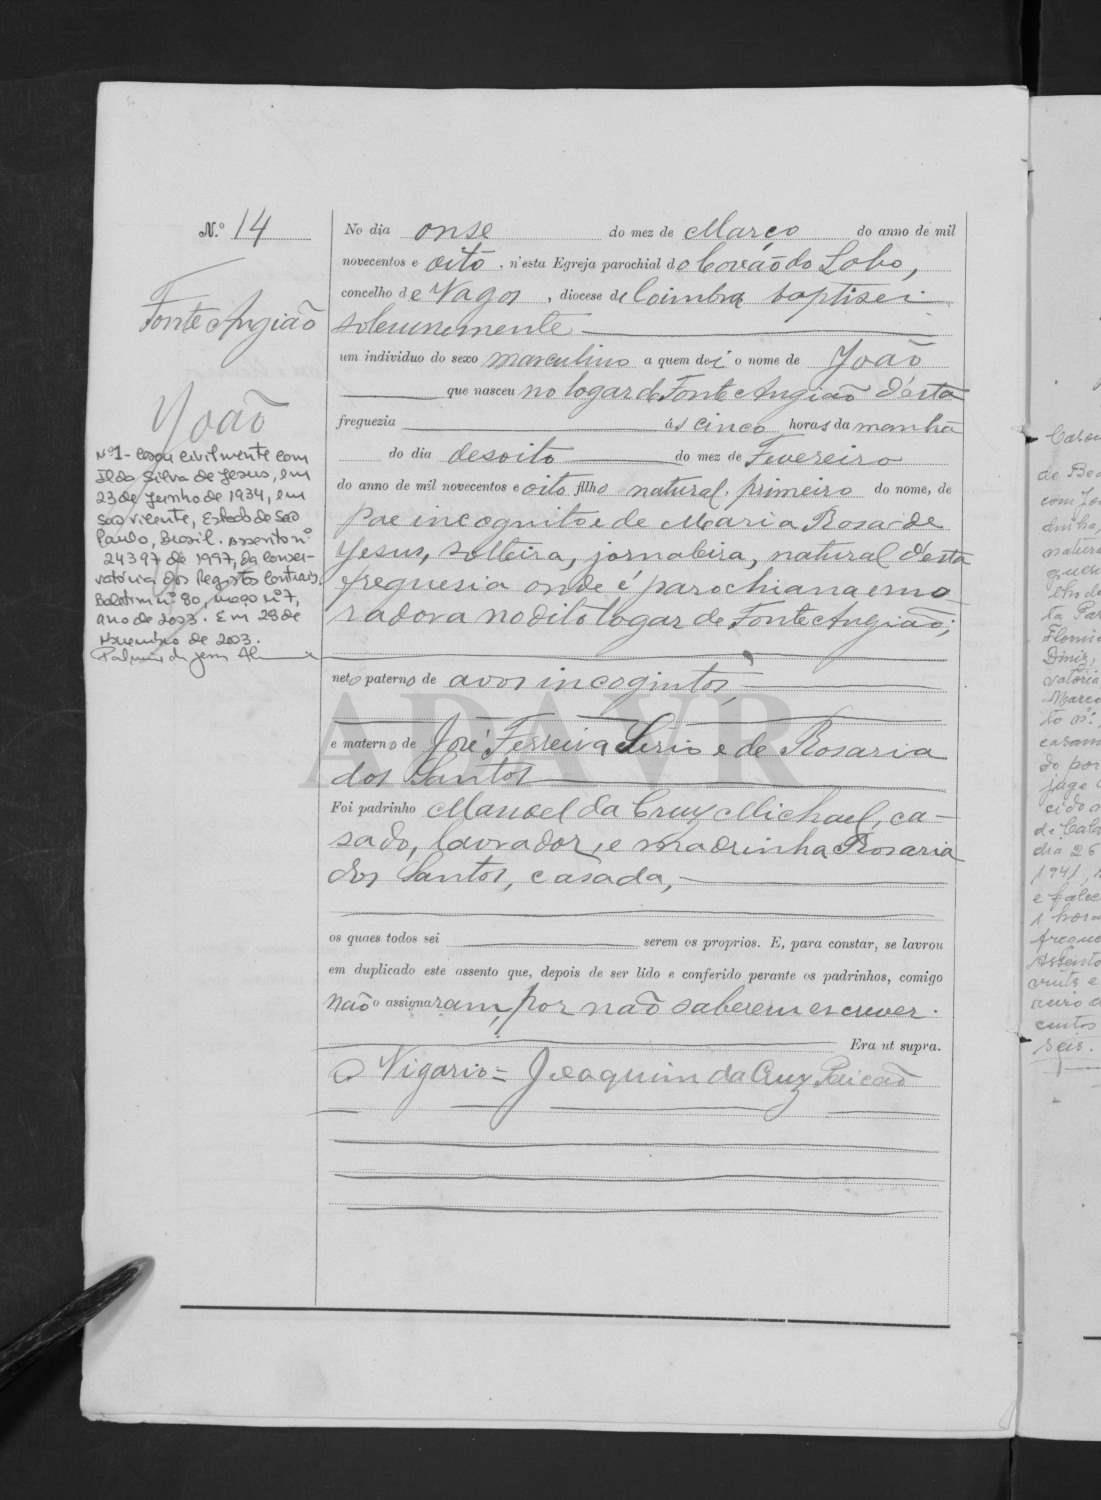 N.º 14
Fonte Angião
João
Nº1 - Casou civilmente com
Ilda Silva de Jesus, em
23 de Junho de 1934, em
São Vicente, Estado de São
Paulo, Brasil. Assento nº
24397 de 1997, da Conser-
vatória dos Registos Centrais.
Boletim nº 80, maço nº 7,
ano de 2003. Em 28 de
Novembro de 2003.
No dia onse do mez de Março do anno de mil
novecentos e oito, n'esta Egreja parochial do Covão do Lobo,
concelho de Vagos, diocese de Coimbra baptisei
solemnemente
um individuo do sexo masculino a quem dei o nome de João
que nasceu no logar de Fonte Angião d'esta
freguezia ás cinco horas da manhã
do dia desoito do mez de Fevereiro
do anno de mil novecentos e oito filho natural, primeiro do nome, de
pae incognito e de Maria Rosa de
Jesus, solteira, jornaleira, natural d'esta
freguesia onde é parochiana e mo
radora no dito logar de Fonte Angião;
neto paterno de avos incogintos,
e materno de José Ferreira Serio e de Rosaria
dos Santos
Foi padrinho Manoel da Cruz Michael, ca-
sado, lavrador, e madrinha Rosaria
dos Santos, casada,
os quaes todos sei serem os proprios. E, para constar, se lavrou
em duplicado este assento que, depois de ser lido e conferido perante os padrinhos, comigo
não o assignaram, por não saberem escrever.
Era ut supra.
O Vigario = Joaquim da Cruz
ADAVR
Casou
de
com
natural
1941,
e
seis.